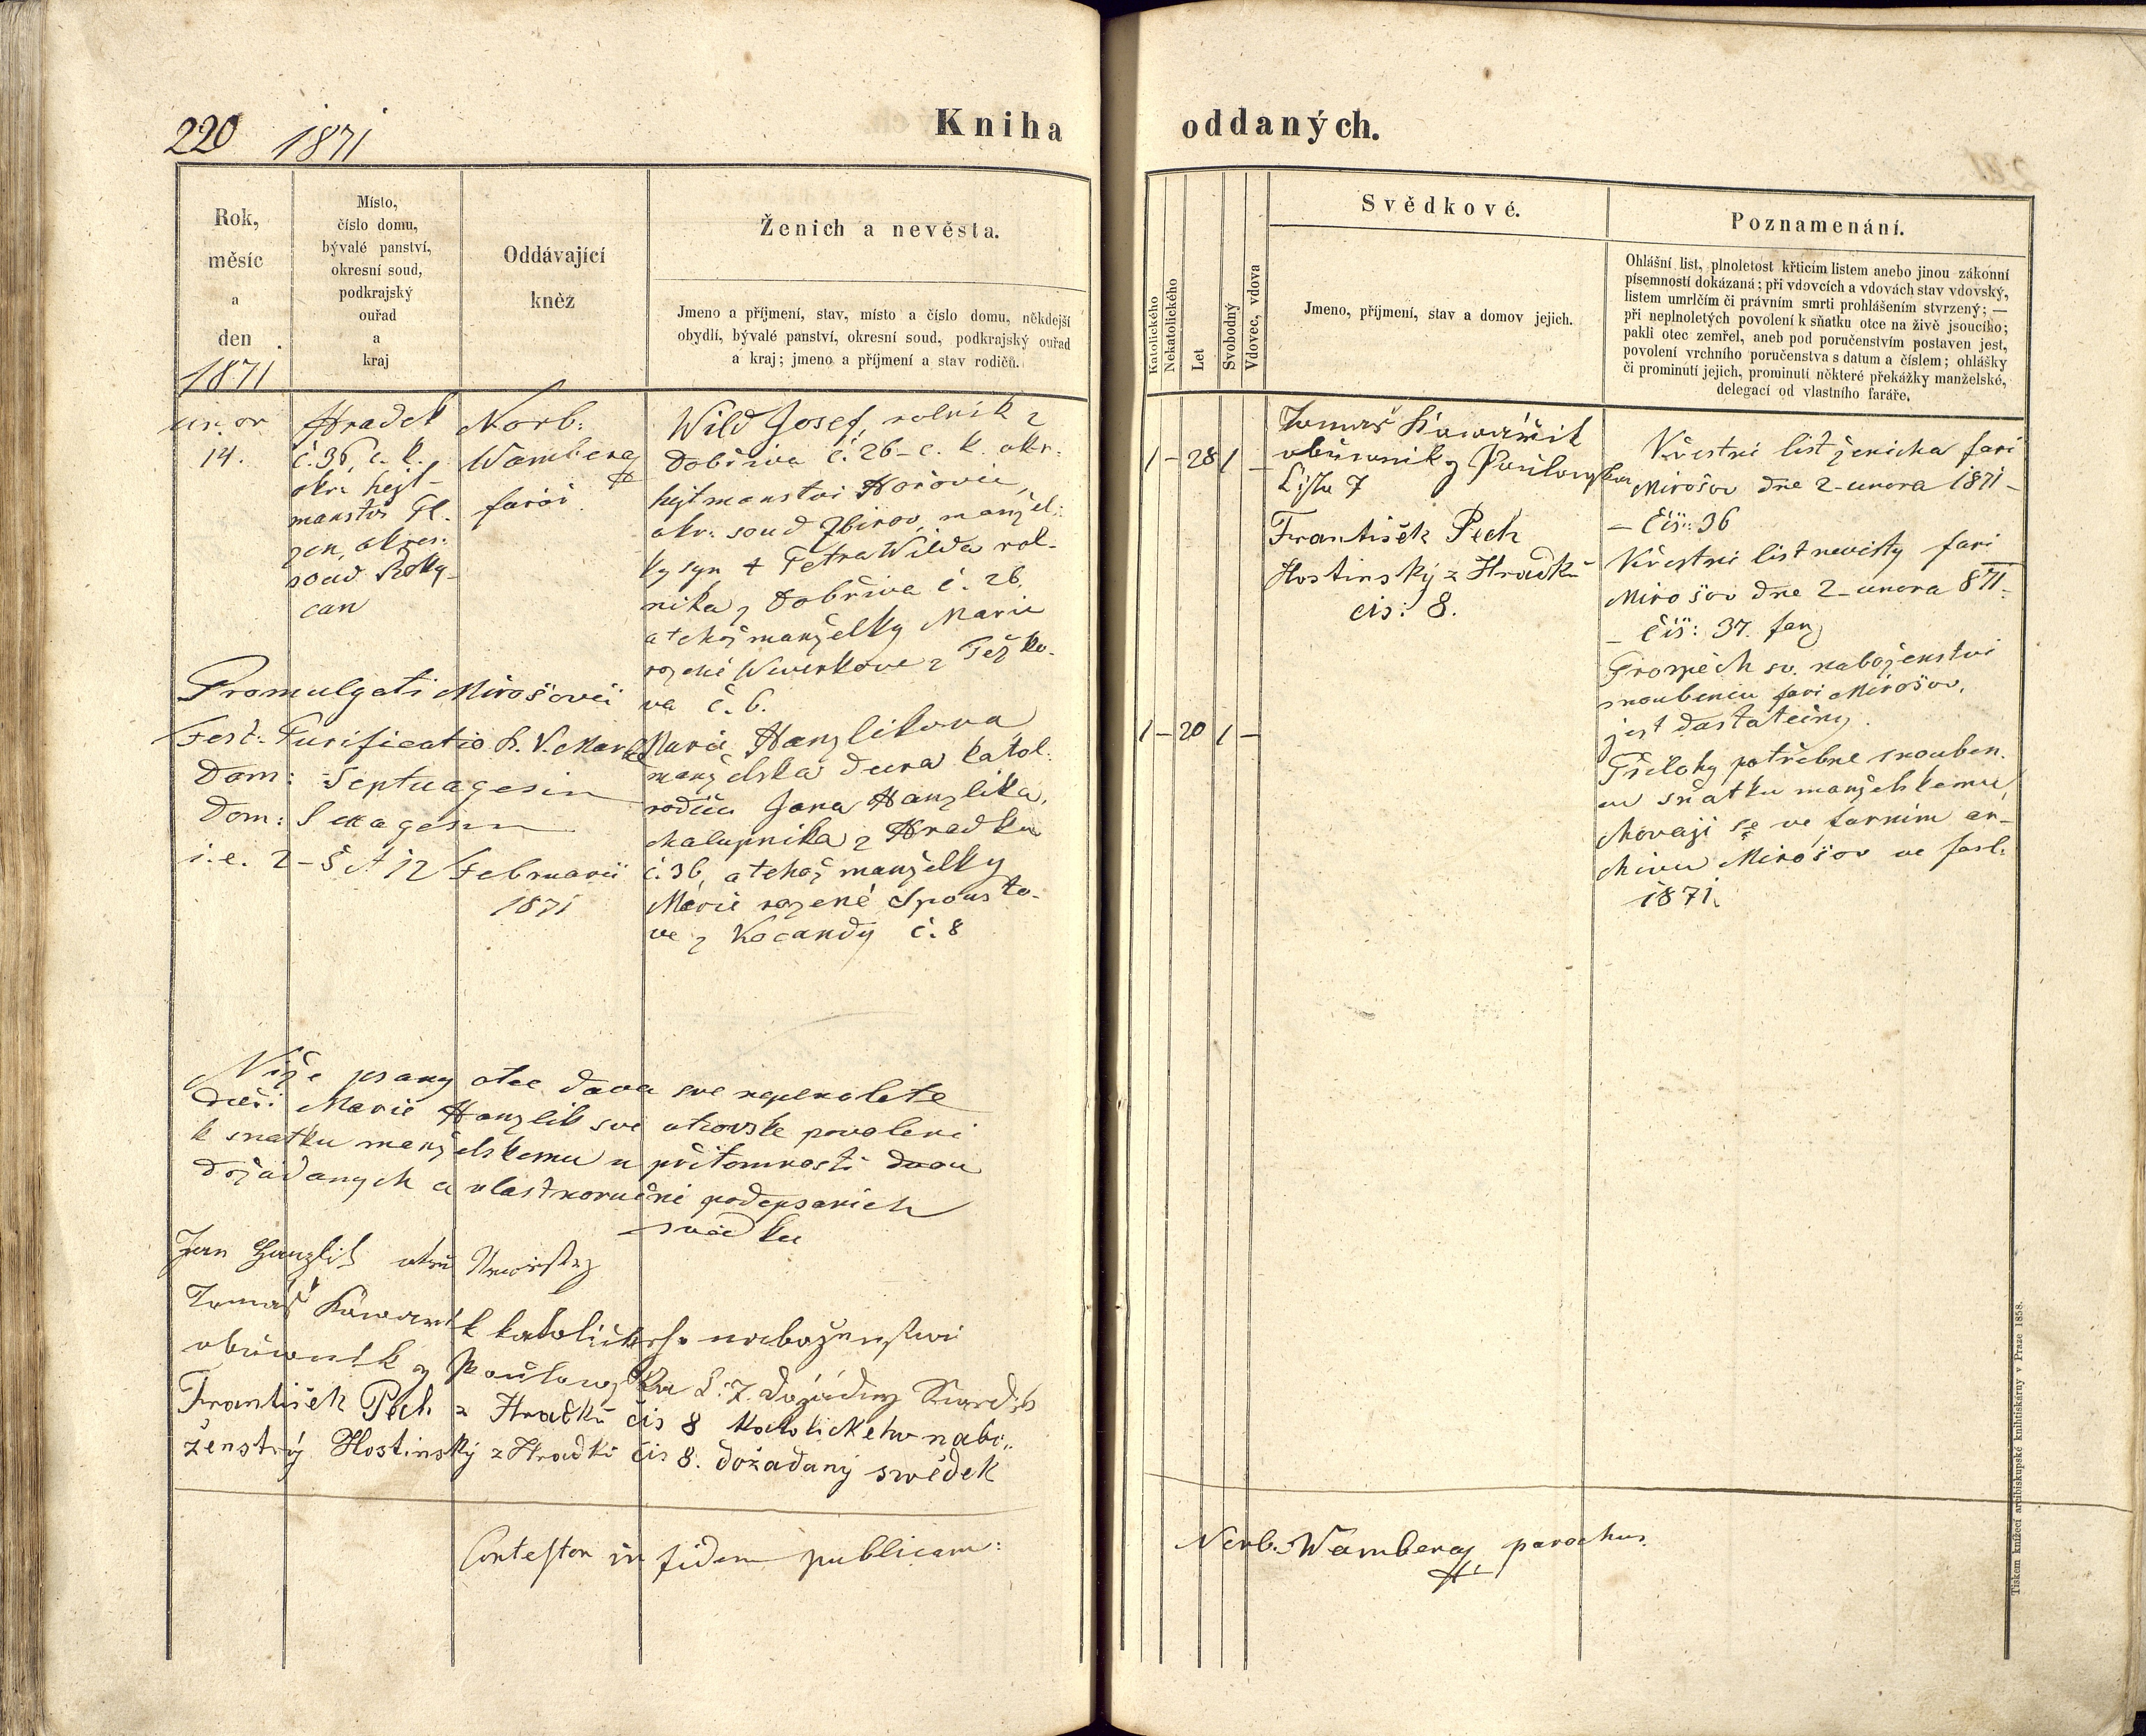 220 1871
Kniha oddaných.
Rok,
měsíc
a
den
1871
Místo,
číslo domu,
bývalé panství,
okresní soud,
podkrajský
ouřad
a
kraj
Oddávající
kněz
Ženich a nevěsta.
Jmeno a příjmení, stav, místo a číslo domu, někdejší
obydlí, bývalé panství, okresní soud, podkrajský ouřad
a kraj; jmeno a příjmení a stav rodičů.
unor
14.
Hradek
č. 36, c. k.
okr. hejt-
manstvi Pl-
zen, okres:
soud Roky-
can
Norb:
Wamberg
farář
Wild Josef, rolnik z
Dobřiva č. 26 – c. k. okr.
hejtmanstvi Hořovic,
okr. soud Zbirov, manžel:
ky syn † Petra Wilda rol-
nika z Dobřiva č. 26.
a tehož manželky Marie
rozené Wewerkove z Těžko-
va č. 6.
Promulgati Mirošovii
Fest: Purificatio B. V. Mariae
Dom: Septuagesim
Dom: Sexagesim
i. e. 2 – 5 et 12 Februarii
1871
Marie Hanzlikova
manželska dcera katol.
rodičů Jana Hanzlika,
chalupnika z Hradku
č. 36, a tehož manželky
Marie rozené Spousto-
ve z Kocandy č. 8
Niže psany otec dava sve neplnolete
dceři Marie Hanzlik své otcovske povoleni
k snatku manželskemu u přitomnosti dvou
dožadanych a vlastnoručně podepsanich
svědku
Jan Hanzlik otec Newěsty
Tomáš Kowařik katolickeho nabožénstwi
obuwnik z Paulowska č. 7 dožádány Swědek
František Pech z Hradku čis 8 Katolickeho nabo„
ženstvý Hostinský z Hradku čis 8. dožadaný swědek
Contestor in fidem publicam:
Katolického
Nekatolického
Let
Svobodný
Vdovec, vdova
Svědkové.
Jmeno, příjmení, stav a domov jejich.
Poznamenání.
Ohlášní list, plnoletost křticím listem anebo jinou zákonní
písemností dokázaná; při vdovcích a vdovách stav vdovský,
listem umrlčím či právním smrti prohlášením stvrzený; —
při neplnoletých povolení k sňatku otce na živě jsoucího;
pakli otec zemřel, aneb pod poručenstvím postaven jest,
povolení vrchního poručenstva s datum a číslem; ohlášky
či prominutí jejich, prominutí některé překážky manželské,
delegací od vlastního faráře.
1 – 28 1 –
1 – 20 1 –
Tomaš Kowařik
obuwnik z Paulowska
čislo 7
František Pech
Hostinský z Hradku
cis: 8.
Křestni list ženicha fari
Mirošov dne 2 unora 1871 –
– čis: 36
Křestni list nevěsty fari
Mirošov dne 2 – unora 871 –
– čis: 37.
Prospěch sv. naboženstvi
snoubenců fari Mirošov,
jest dostatečny.
Přilohy potřebne snouben.
ců sňatku manželskemu
chovaji se ve farnim ar-
chivu Mirošov ve fasl:
1871.
Norb. Wamberg, parochus.
Tiskem knížecí arcibiskupské knihtiskárny v Praze 1858.